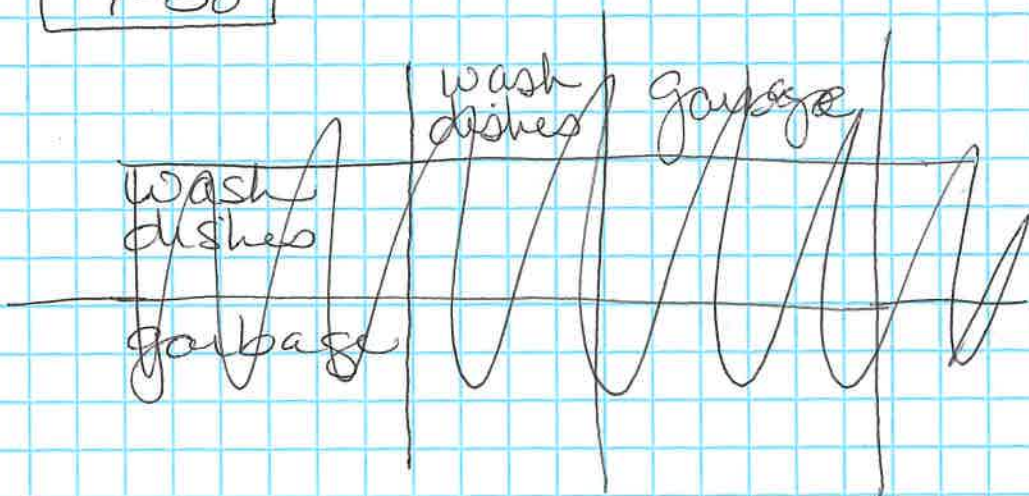 wash
dishes
garbage
wash
dishes
garbage